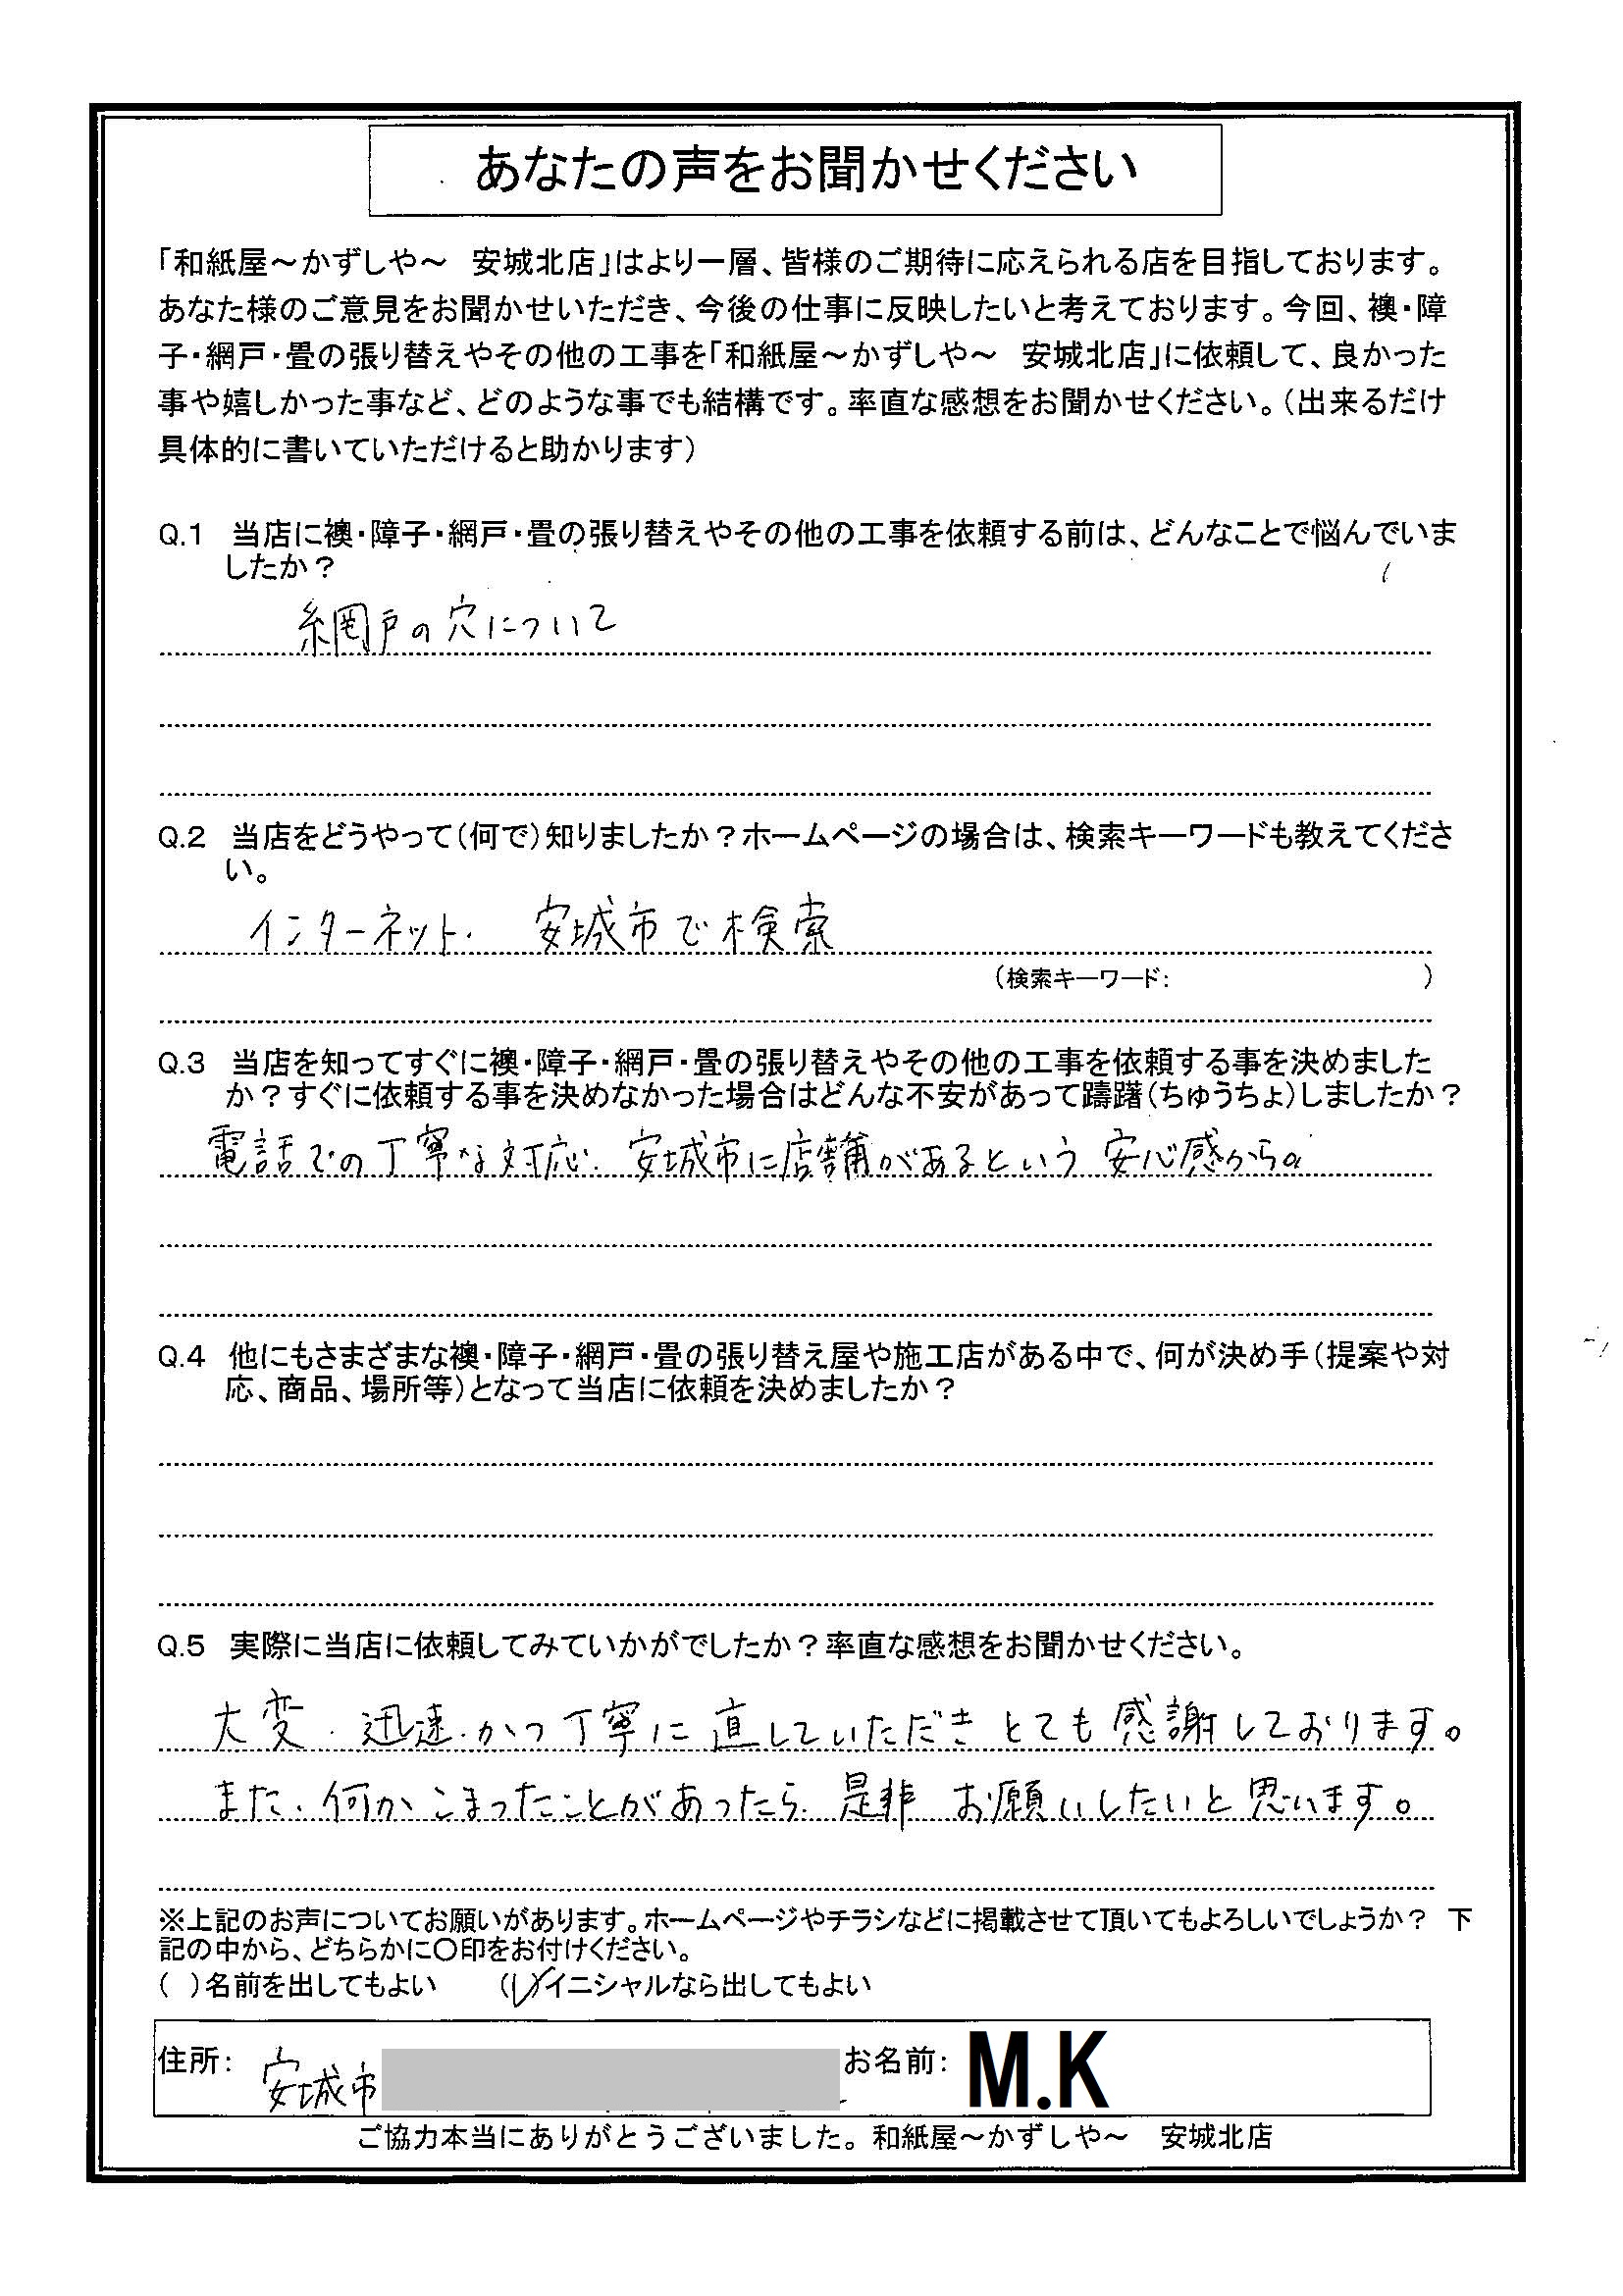 あなたの声をお聞かせください
「和紙屋～かずしや～　安城北店」はより一層、皆様のご期待に応えられる店を目指しております。
あなた様のご意見をお聞かせいただき、今後の仕事に反映したいと考えております。今回、襖・障
子・網戸・畳の張り替えやその他の工事を「和紙屋～かずしや～　安城北店」に依頼して、良かった
事や嬉しかった事など、どのような事でも結構です。率直な感想をお聞かせください。（出来るだけ
具体的に書いていただけると助かります）
Q.1　当店に襖・障子・網戸・畳の張り替えやその他の工事を依頼する前は、どんなことで悩んでいま
したか？
網戸の穴について
Q.2　当店をどうやって（何で）知りましたか？ホームページの場合は、検索キーワードも教えてくださ
い。
インターネット. 安城市で検索
（検索キーワード：　　　　　　　　　　）
Q.3　当店を知ってすぐに襖・障子・網戸・畳の張り替えやその他の工事を依頼する事を決めました
か？すぐに依頼する事を決めなかった場合はどんな不安があって躊躇（ちゅうちょ）しましたか？
電話での丁寧な対応、安城市に店舗があるという安心感から。
Q.4　他にもさまざまな襖・障子・網戸・畳の張り替え屋や施工店がある中で、何が決め手（提案や対
応、商品、場所等）となって当店に依頼を決めましたか？
Q.5　実際に当店に依頼してみていかがでしたか？率直な感想をお聞かせください。
大変、迅速、かつ丁寧に直していただきとても感謝しております。
また、何かこまったことがあったら是非お願いしたいと思います。
※上記のお声についてお願いがあります。ホームページやチラシなどに掲載させて頂いてもよろしいでしょうか？　下
記の中から、どちらかに〇印をお付けください。
（　）名前を出してもよい　　（✓）イニシャルなら出してもよい
住所：安城市　お名前：M.K
ご協力本当にありがとうございました。和紙屋～かずしや～　安城北店